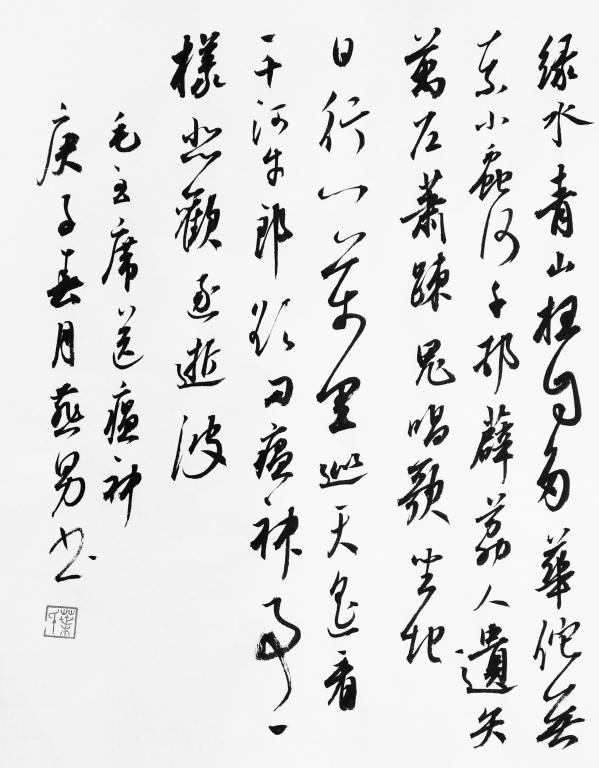 緑水青山枉自多華佗無
奈小蟲何千邨薜荔人遺矢
萬户蕭踈鬼唱歌坐地
日行八萬里巡天遥看
一千河牛郎欲問瘟神事一
樣悲歡逐逝波
毛主席送瘟神
庚子春月燕男书